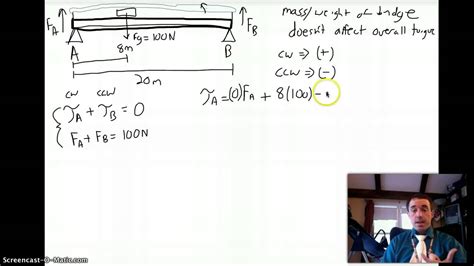 mass/weight of bridge
doesn't affect overall torque
F_A
F_B
Fg=100N
A
8m
B
20m
CW ⇒ (+)
CCW ⇒ (-)
CW CCW
τ_A + τ_B = 0
F_A + F_B = 100N
τ_A = (0)F_A + 8(100) -
Screencast-O-Matic.com